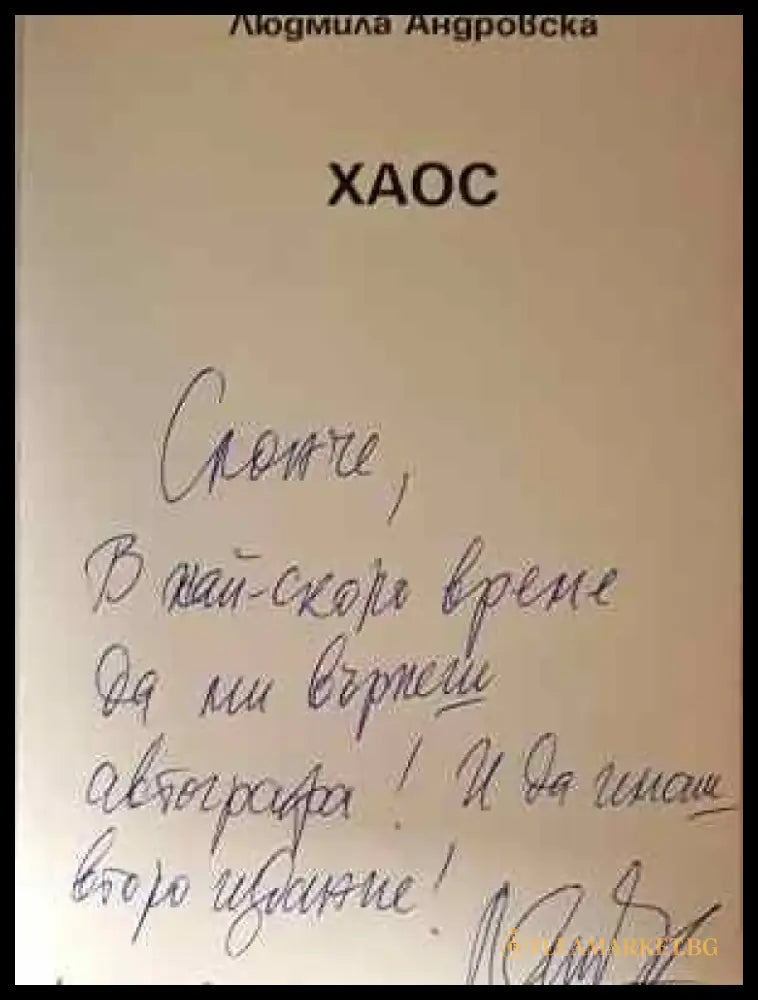 Людмила Андровска
ХАОС
Слонче,
В най-скоро време
да ми върнеш
автографа! И да имаш
второ издание!
FLEAMARKET.BG